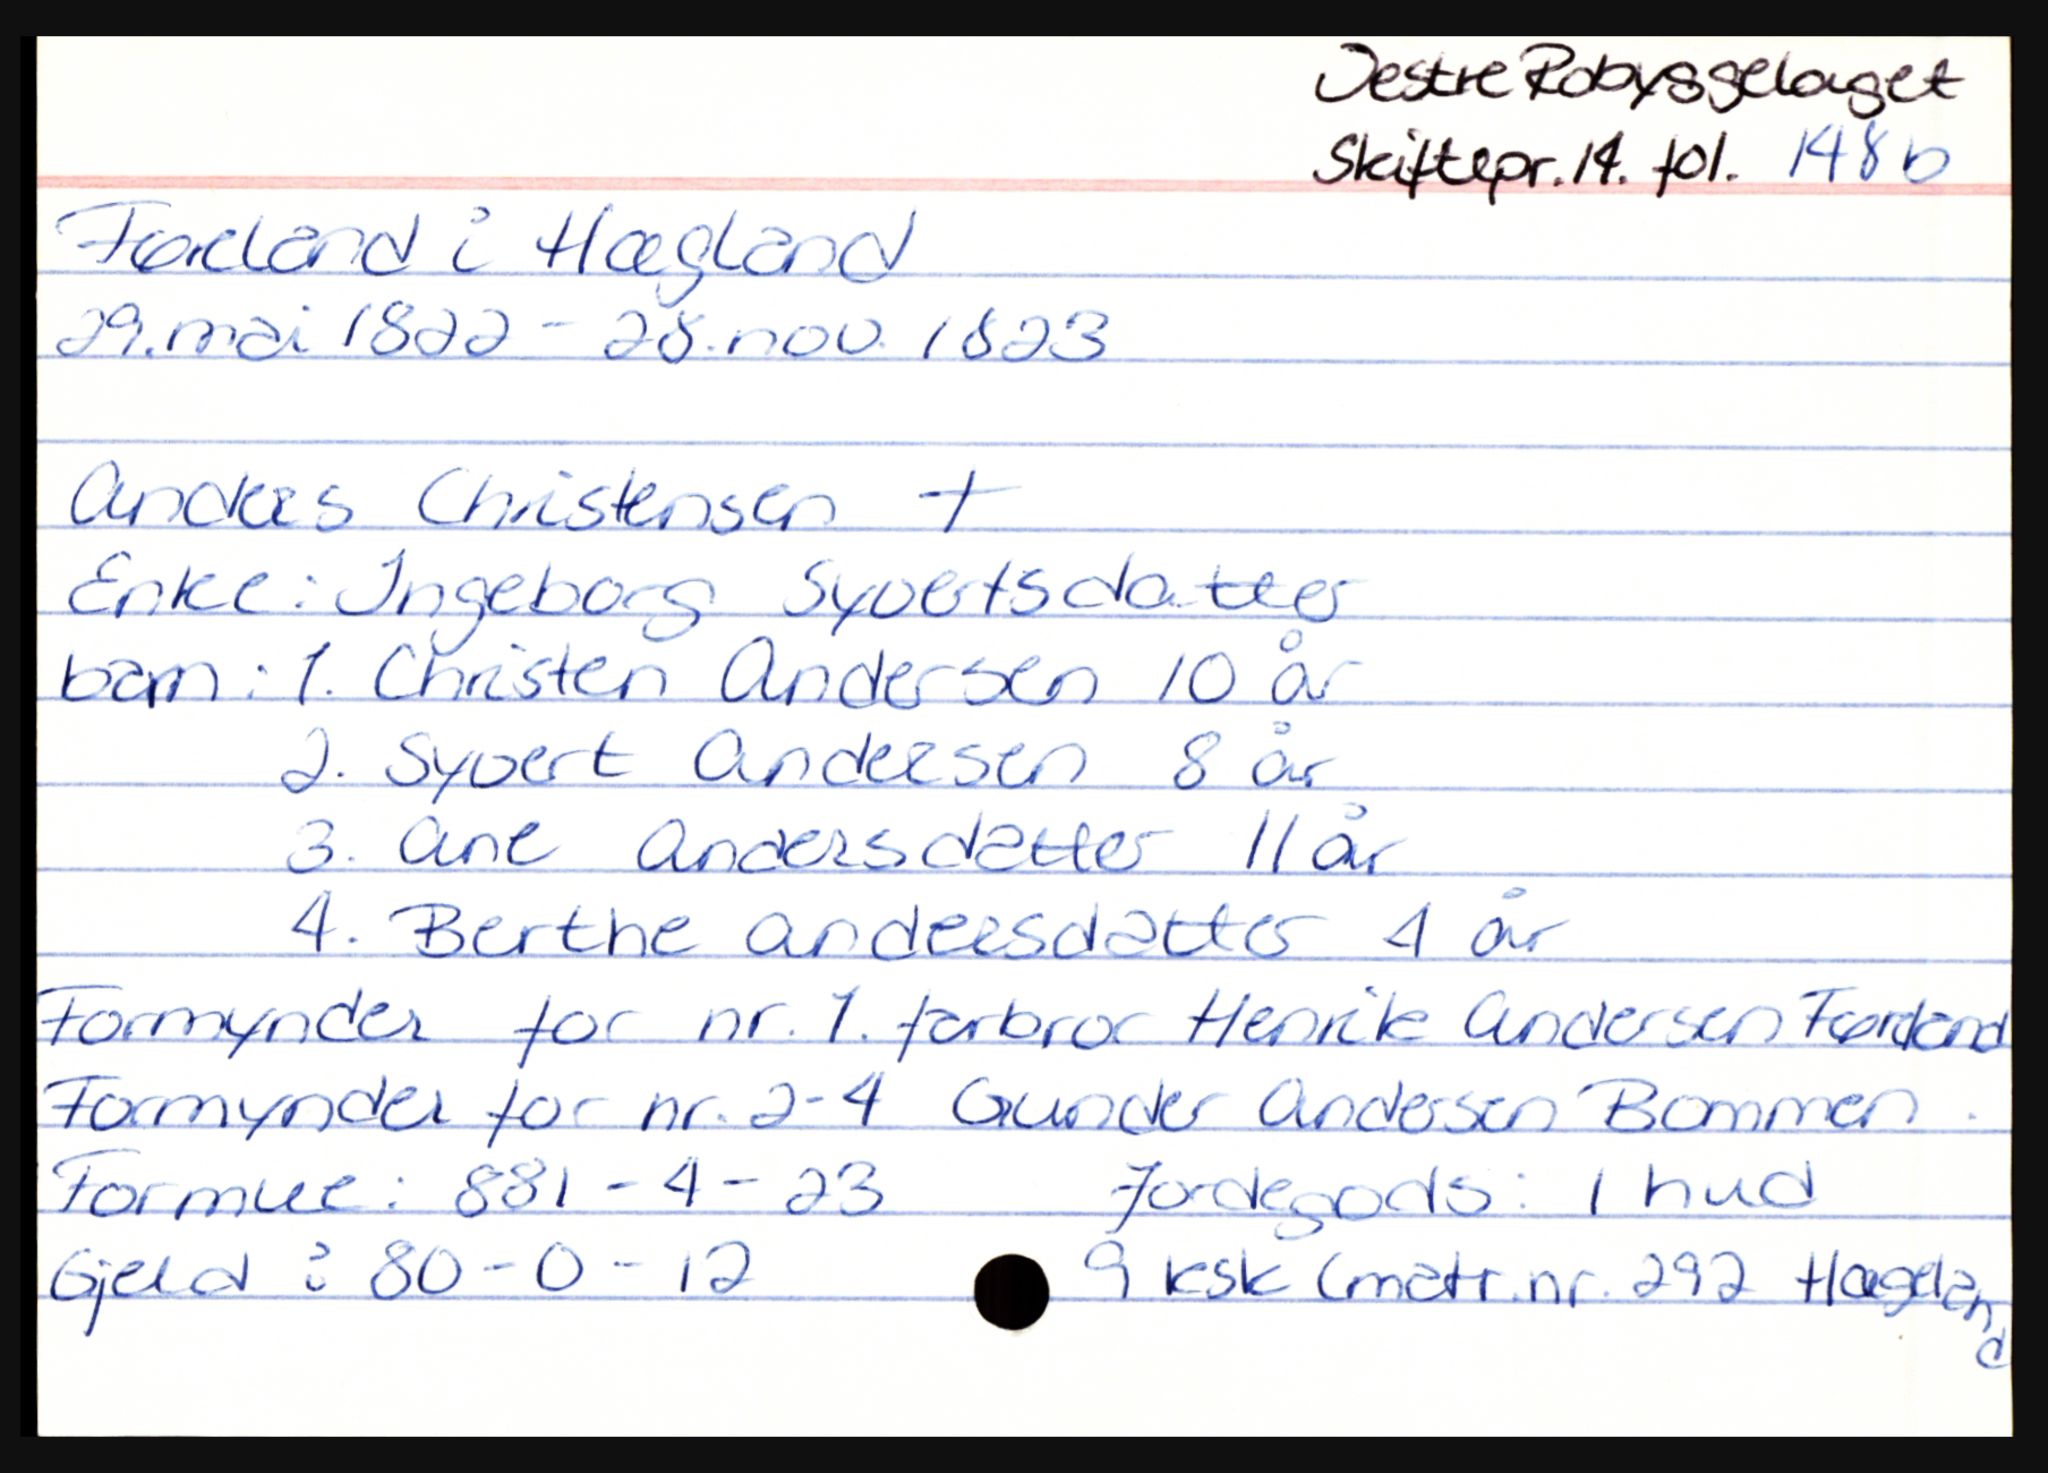 Vestre Robyggelaget
Skiftepr. 14. fol. 148 b
Færeland i Hægland
29. mai 1822 - 28. nov. 1823
Anders Christensen +
Enke: Ingeborg Syvertsdatter
barn: 1. Christen Andersen 10 år
2. Syvert Andersen 8 år
3. Ane Andersdatter 11 år
4. Berthe Andersdatter 4 år
Formynder for nr. 1. farbror Henrik Andersen Færeland
Formynder for nr. 2-4 Gunder Andersen Bommen.
Formue: 881 - 4 - 23 Jordegods: 1 hud
Gjeld: 80 - 0 - 12 9 ksk (matr. nr. 292 Hægeland